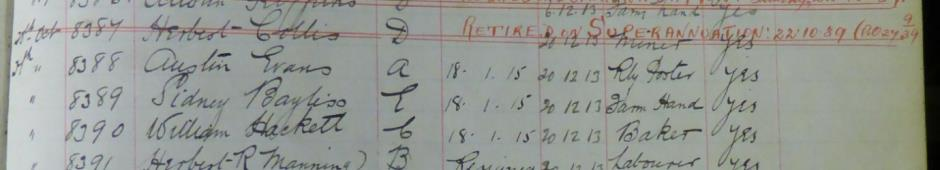 6.12.13 Farm Hand yes
Oct 8387 Herbert Collis D RETIRED ON SUPERANNUATION: 22:10:39 20 12 13 Miner yes
" 8388 Austin Evans A 18. 1. 15 20 12 13 Rly Porter yes
" 8389 Sidney Bayliss E 18. 1. 15 20 12 13 Farm Hand yes
" 8390 William Hackett C 18. 1. 15 20 12 13 Baker yes
" 8391 Herbert R Manning B Resigned 20 12 13 Labourer yes